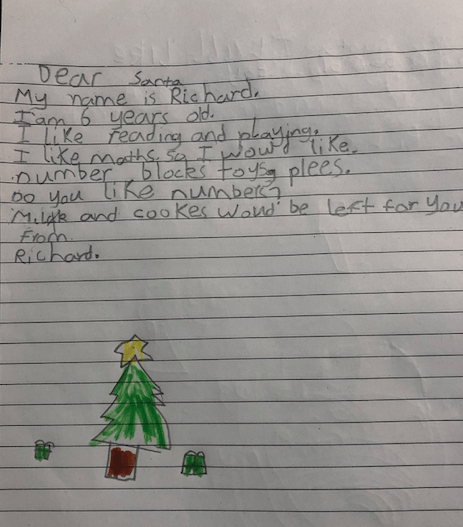 Dear Santa
My name is Richard.
I am 6 years old.
I like reading and playing.
I like maths. so I would like.
number blocks toys plees.
Do you like numbers?
Milk and cookes would be left for you
From
Richard.